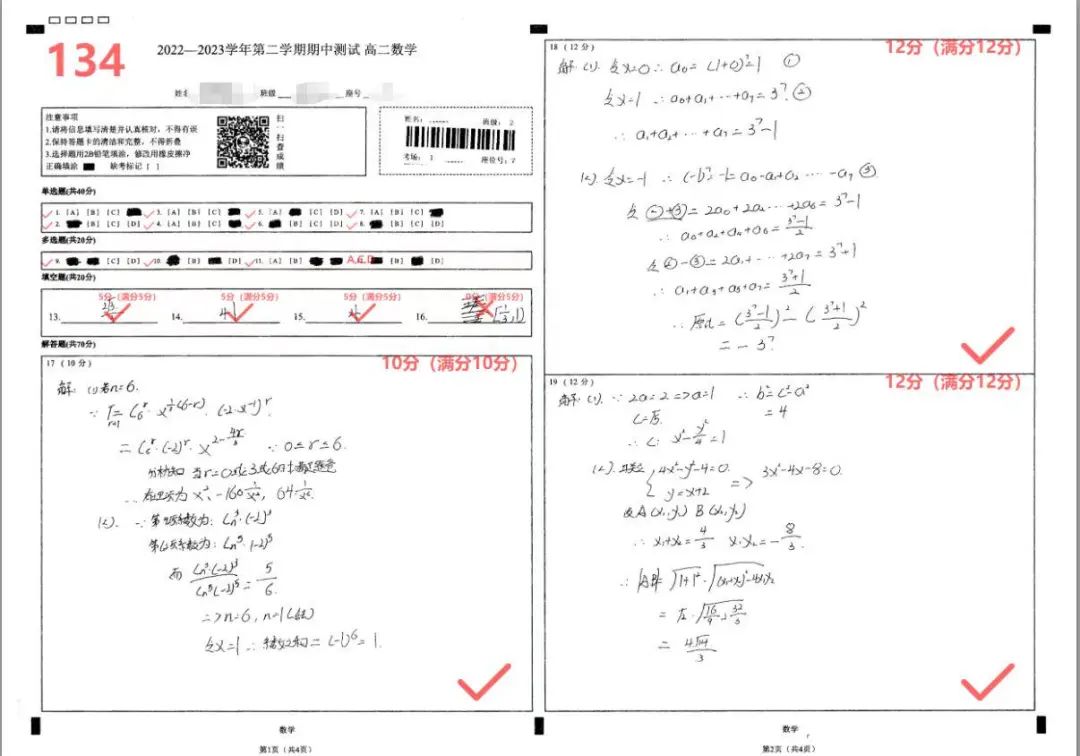 134
2022—2023学年第二学期期中测试 高二数学
姓名 班级 座号
注意事项
1.请将信息填写清楚并认真核对,不得有误
2.保持答题卡的清洁和完整,不得折叠
3.选择题用2B铅笔填涂,修改用橡皮擦净
正确填涂 缺考标记 [ ]
扫一扫查成绩
姓名: 班级: 2
考场: 1 座位号: 7
单选题(共40分)
1. [A] [B] [C] 3. [A] [B] [C] 5. [A] [C] [D] 7. [A] [B] [C]
2. [B] [C] [D] 4. [A] [B] [C] 6. [A] [C] [D] 8. [B] [C] [D]
多选题(共20分)
9. [C] [D] 10. [B] [D] 11. [A] [B] A,C,D [B] [D]
填空题(共20分)
5分 (满分5分) 5分 (满分5分) 5分 (满分5分) 0分 (满分5分)
13. 14. 15. 16. (1/3,1)
解答题(共70分)
17 (10 分) 10分 (满分10分)
解: (1) 若n=6.
∵ T_{r+1} = C₆^r · x^{1/3(6-r)} · (-2·x⁻¹)^r
= C₆^r·(-2)^r · x^{2-4r/3} ∵ 0≤r≤6.
当r=0或3或6时
有理项为 x², -160 1/x², 64 1/x⁶.
(2). ∵ 第4项系数为: Cn³·(-2)³
第6项系数为: Cn⁵·(-2)⁵
而 Cn³(-2)³ / Cn⁵(-2)⁵ = 5/6.
=> n=6, n=1(舍)
令x=1 ∴ 系数之和 = (-1)⁶ = 1.
数学
第1页 (共4页)
18 (12 分) 12分 (满分12分)
解: (1). 令x=0 ∴ a₀ = (1+0)⁷=1 ①
令x=1 ∴ a₀+a₁+…+a₇=3⁷. ②
∴ a₁+a₂+…+a₇=3⁷-1
(2). 令x=-1 ∴ (-1)⁷=-1=a₀-a₁+a₂ … -a₇ ③
令②+③ = 2a₀+2a₂…+2a₆=3⁷-1
∴ a₀+a₂+a₄+a₆= (3⁷-1)/2
令②-③=2a₁+…+2a₇=3⁷+1
∴ a₁+a₃+a₅+a₇= (3⁷+1)/2
∴ 原式= ((3⁷-1)/2)² - ((3⁷+1)/2)²
= -3⁷
19 (12 分) 12分 (满分12分)
解: (1). ∵ 2a=2 => a=1 ∴ b²=c²-a²
c=√5. =4
∴ C: x²-y²/4=1
(2). 联立 {4x²-y²-4=0. => 3x²-4x-8=0.
y=x+2
设A(x₁,y₁) B(x₂,y₂)
∴ x₁+x₂=4/3 x₁x₂=-8/3.
∴ |AB|=√(1+1²)·√((x₁+x₂)²-4x₁x₂)
= √2·√(16/9+32/3)
=
数学
第2页 (共4页)